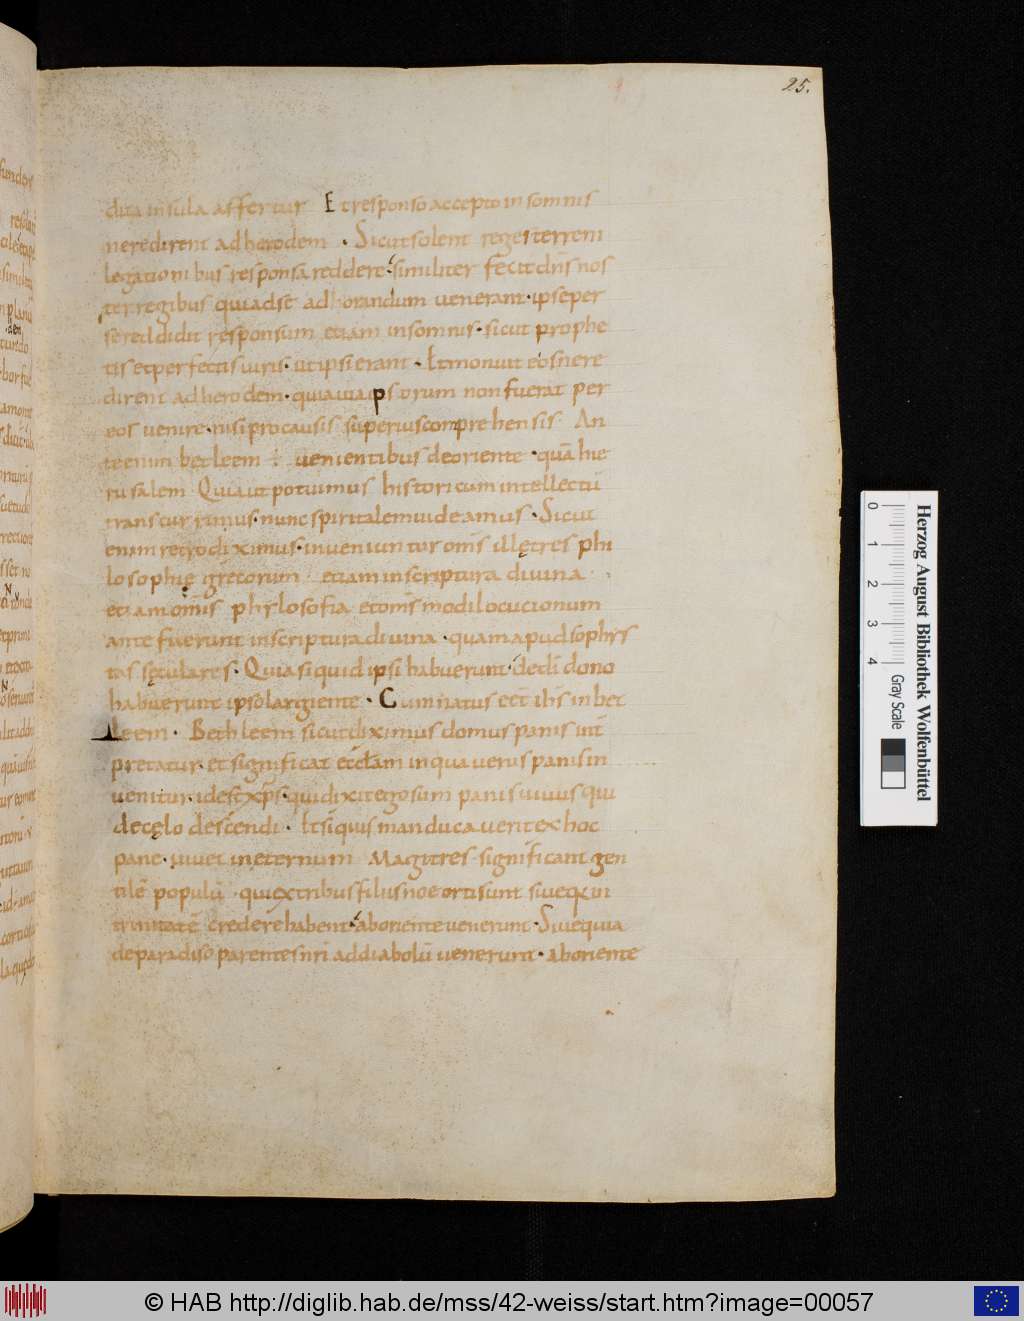 25.
dita insula affertur Et responso accepto in somnis
neredirent ad herodem . Sicut solent reges terreni
legationibus responsa reddere similiter fecit dn̄s nos
ter regibus qui ad se adhorandum venerant · ipse per
se reddidit responsum etiam in somnis · sicut prophe
tis et perfectis viris · ut ipsi erant . Et monuit eos nere
dirent ad herodem · quia via ipsorum non fuerat per
eos venire · nisi pro causis superius conprehensis An
te enim betleem venientibus de oriente · quā hie
rusalem Quia ut potuimus historicum intellectū
transcurrimus · nunc spiritalem videamus · Sicut
enim retro diximus · inveniuntur om̄s illę tres phi
losophię grecorum etiam in scriptura divina
etiam om̄is phylosofia et om̄s modi locucionum
ante fuerunt in scriptura divina · quam apud sophys
tas sęculares · Quia si quid ipsi habuerunt dedī dono
habuerunt ipso largiente · Cum natus eēt ih̄s in bet
leem · Bethleem sicut diximus domus panis int̄
pretatur · et significat ęcclām in qua verus panis in
venitur · id est xp̄s · qui dixit ego sum panis vivus qui
de cęlo descendi · Et si quis manducaverit ex hoc
pane · vivet in eternum Magi tres significant gen
tilē populū · qui ex tribus filiis noe orti sunt sive qui in
trinitatē credere habent ab oriente venerunt · Sive quia
de paradiso parentes nr̄i ad diabolū venerunt · ab oriente
Herzog August Bibliothek Wolfenbüttel
0 1 2 3 4
Gray Scale
© HAB http://diglib.hab.de/mss/42-weiss/start.htm?image=00057